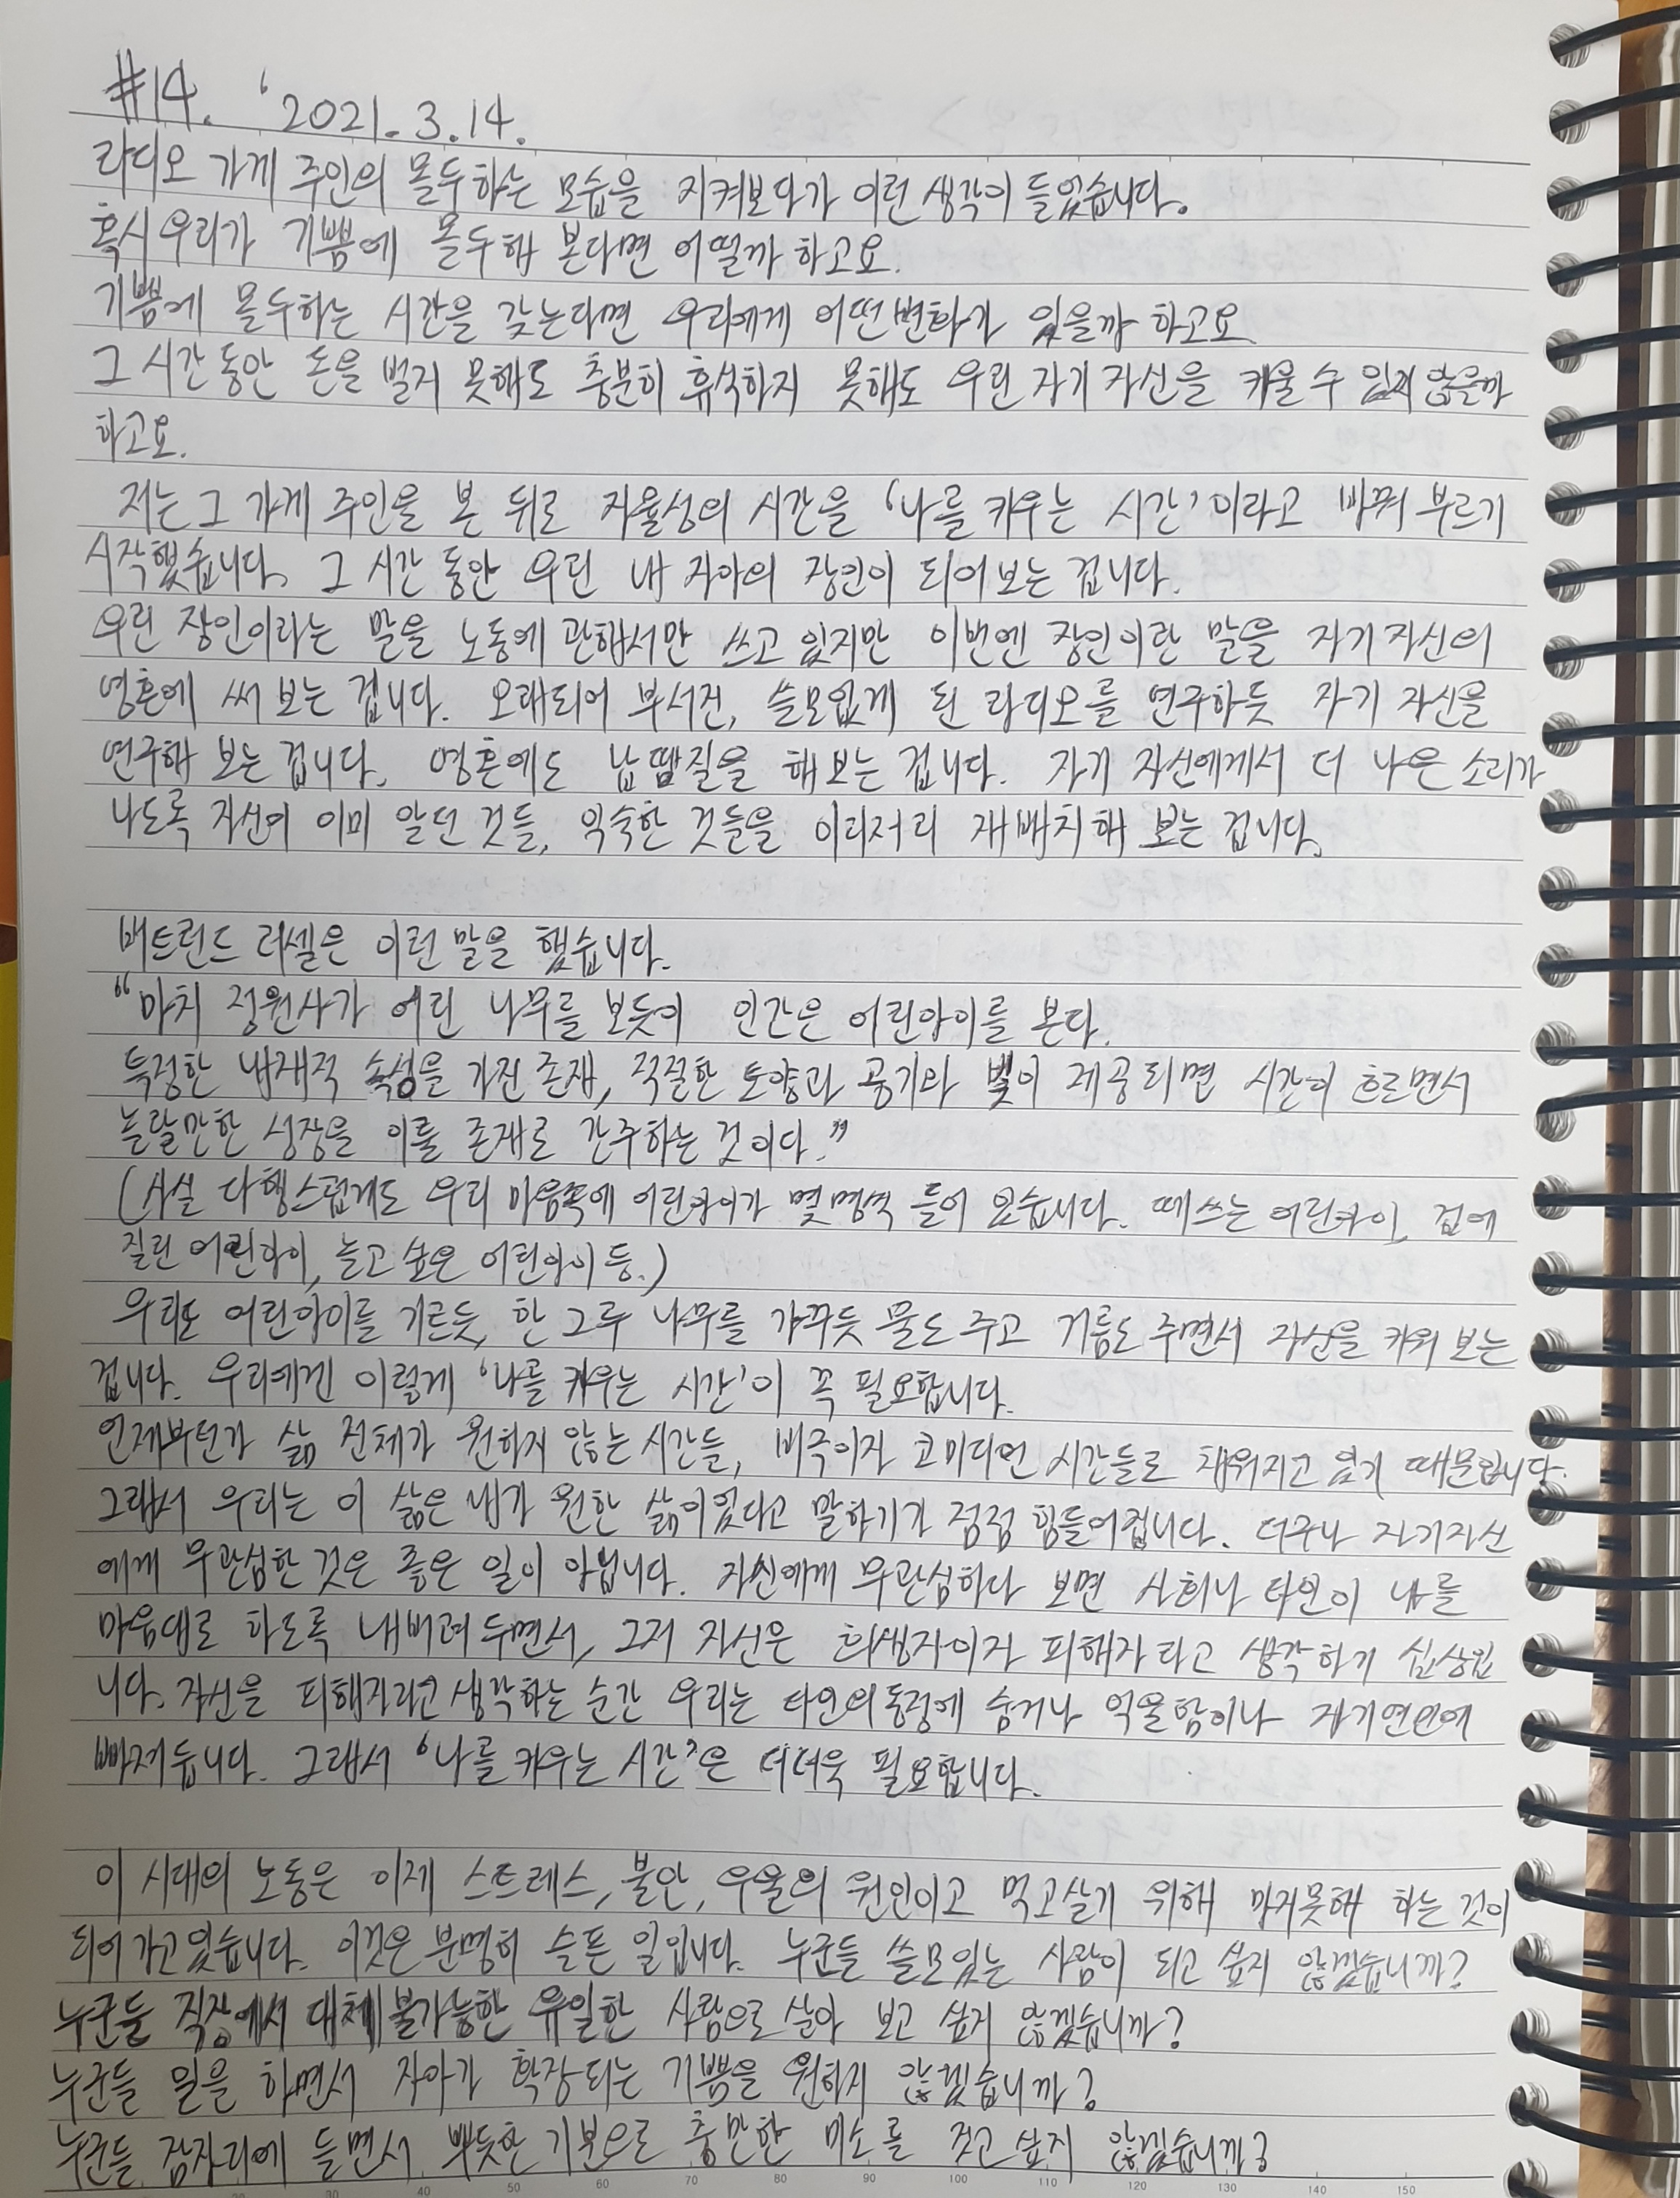 #14. '2021. 3. 14.
라디오 가게 주인의 몰두하는 모습을 지켜보다가 이런 생각이 들었습니다.
혹시 우리가 기쁨에 몰두해 본다면 어떨까 하고요.
기쁨에 몰두하는 시간을 갖는다면 우리에게 어떤 변화가 있을까 하고요.
그 시간 동안 돈을 벌지 못해도 충분히 휴식하지 못해도 우린 자기 자신을 키울 수 있지 않을까
하고요.
저는 그 가게 주인을 본 뒤로 자율성의 시간을 '나를 키우는 시간'이라고 바꿔 부르기
시작했습니다. 그 시간 동안 우린 내 자아의 장인이 되어보는 겁니다.
우린 장인이라는 말을 노동에 관해서만 쓰고 있지만 이번엔 장인이란 말을 자기 자신의
영혼에 써 보는 겁니다. 오래되어 부서진, 쓸모없게 된 라디오를 연구하듯 자기 자신을
연구해 보는 겁니다. 영혼에도 납땜질을 해 보는 겁니다. 자기 자신에게서 더 나은 소리가
나도록 자신이 이미 알던 것들, 익숙한 것들을 이리저리 재배치해 보는 겁니다.
버트런드 러셀은 이런 말을 했습니다.
"마치 정원사가 어린 나무를 보듯이 인간은 어린아이를 본다.
특정한 내재적 속성을 가진 존재, 적절한 토양과 공기와 빛이 제공되면 시간이 흐르면서
놀랄만한 성장을 이룰 존재로 간주하는 것이다."
(사실 다행스럽게도 우리 마음속에 어린아이가 몇 명씩 들어 있습니다. 떼쓰는 어린아이, 겁에
질린 어린아이, 놀고 싶은 어린아이 등.)
우리도 어린아이를 기르듯, 한 그루 나무를 가꾸듯 물도 주고 거름도 주면서 자신을 키워 보는
겁니다. 우리에겐 이렇게 '나를 키우는 시간'이 꼭 필요합니다.
언제부턴가 삶 전체가 원하지 않는 시간들, 비극이자 코미디인 시간들로 채워지고 있기 때문입니다.
그래서 우리는 이 삶은 내가 원한 삶이었다고 말하기가 점점 힘들어집니다. 더구나 자기자신
에게 무관심한 것은 좋은 일이 아닙니다. 자신에게 무관심하다 보면 사회나 타인이 나를
마음대로 하도록 내버려 두면서, 그저 자신은 희생자이자 피해자라고 생각하기 십상입
니다. 자신을 피해자라고 생각하는 순간 우리는 타인의 동정에 숨거나 억울함이나 자기연민에
빠져듭니다. 그래서 '나를 키우는 시간'은 더더욱 필요합니다.
이 시대의 노동은 이제 스트레스, 불안, 우울의 원인이고 먹고살기 위해 마지못해 하는 것이
되어 가고 있습니다. 이것은 분명히 슬픈 일입니다. 누군들 쓸모있는 사람이 되고 싶지 않겠습니까?
누군들 직장에서 대체 불가능한 유일한 사람으로 살아 보고 싶지 않겠습니까?
누군들 일을 하면서 자아가 확장되는 기쁨을 원하지 않겠습니까?
누군들 잠자리에 들면서 뿌듯한 기분으로 충만한 미소를 짓고 싶지 않겠습니까?
30 40 50 60 70 80 90 100 110 120 130 140 150